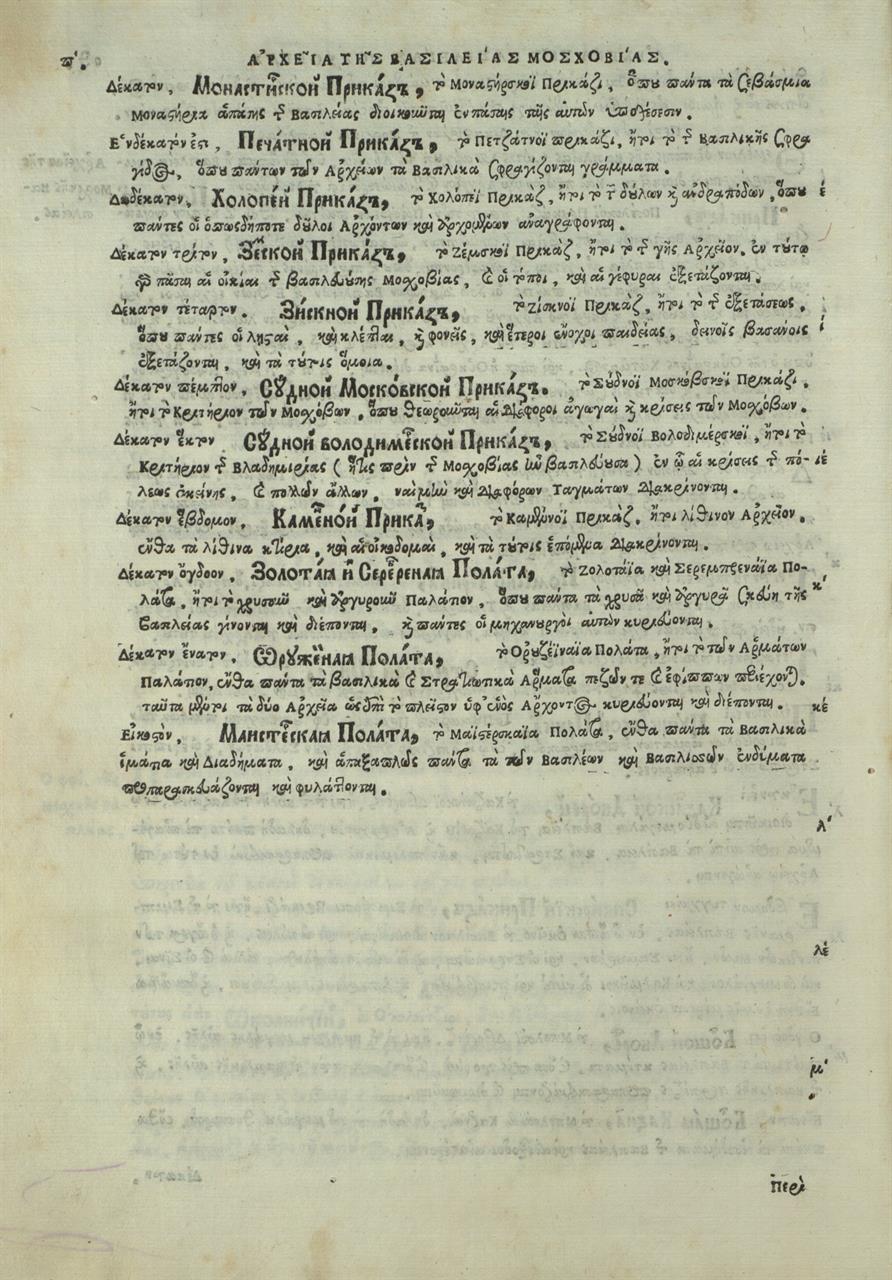 π΄. ΑΡΧΕΙΑ ΤΗΣ ΒΑΣΙΛΕΙΑΣ ΜΟΣΧΟΒΙΑΣ.
Δέκατον, Монастⷭ҇рской Приказъ, τὸ Μοναςήρσκοϊ Πρικάζι, ὅπου πάντα τὰ ςεβάσμια
Μοναςήρια ἁπάσης τῆς Βασιλείας διοικοῦνται ἐν πάσαις ταῖς αὐτῶν ὑποθέσεσιν.
Ἑνδέκατόν ἐςι, Печатной Приказъ, τὸ Πετζάτνοϊ πρικάζι, ἤτοι τὸ τῆς Βασιλικῆς Σφρα
γίδος, ὅπου πάντων τῶν Ἀρχείων τὰ Βασιλικὰ ςφραγίζονται γράμματα.
Δωδέκατον, Холопей Приказъ, τὸ Χολόπεϊ Πρικὰζ, ἤτοι τὸ τῶν δούλων καὶ ἀνδραπόδων, ὅπου έ
πάντες οἱ ὁπωςδήποτε δοῦλοι Ἀρχόντων καὶ ἀρχομένων ἀναγράφονται.
Δέκατον τρίτον, Земской Приказъ, τὸ Ζέμσκοϊ Πρικὰζ, ἤτοι τὸ τῆς γῆς Ἀρχεῖον. ἐν τούτῳ
πᾶσαι αἱ οἰκίαι τῆς βασιλευούσης Μοσχοβίας, καὶ οἱ τόποι, καὶ αἱ γέφυραι ἐξετάζονται.
Δέκατον τέταρτον. Зыскной Приказъ, τὸ Ζίσκνοϊ Πρικὰζ, ἤτοι τὸ τῆς ἐξετάσεως, ί
ὅπου πάντες οἱ λῃςαὶ, καὶ κλέπται, καὶ φονεῖς, καὶ ἕτεροι ἔνοχοι παιδείας, δειναῖς βασάνοις
ἐξετάζονται, καὶ τὰ τούτοις ὅμοια.
Δέκατον πέμπτον, Судной Московской Приказъ. τὸ Σύδνοϊ Μοσκόβσκοϊ Πρικάζι,
ἤτοι τὸ Κριτήριον τῶν Μοσχόβων, ὅπου θεωροῦνται αἱ διάφοροι ἀγωγαὶ καὶ κρίσεις τῶν Μοσχόβων.
Δέκατον ἕκτον Судной володимерской Приказъ, τὸ Σύδνοϊ Βολοδιμέρσκοϊ, ἤτοι τὸ
Κριτήριον τῆς Βλαδημιρίας (ἥτις πρὶν τῆς Μοσχοβίας ἦν βασιλεύουσα) ἐν ᾧ αἱ κρίσεις τῆς πό- ιέ
λεως ἐκείνης, καὶ πολλῶν ἄλλων, ναὶ μὴν καὶ διαφόρων Ταγμάτων διακρίνονται.
Δέκατον ἕβδομον, Каменой Приказъ, τὸ Καμένοϊ Πρικὰζ, ἤτοι λίθινον Ἀρχεῖον.
ἔνθα τὰ λίθινα κτίρια, καὶ αἱ οἰκοδομαὶ, καὶ τὰ τούτοις ἑπόμενα διακρίνονται.
Δέκατον ὄγδοον, Золотая и Серебреная Полата, τὸ Ζολοτάϊα καὶ Σερεμπρενάϊα Πο- κ΄
λάτα, ἤτοι τὸ χρυσοῦν καὶ ἀργυροῦν Παλάτιον, ὅπου πάντα τὰ χρυσᾶ καὶ ἀργυρᾶ ςκεύη τῆς
Βασιλείας γίνονται καὶ διέπονται, καὶ πάντες οἱ μηχανουργοὶ αὐτῶν κυριεύονται.
Δέκατον ἔνατον, Ѡружейная Полата, τὸ Ὀρουζέϊναϊα Πολάτα, ἤτοι τὸ τῶν Ἁρμάτων
Παλάτιον, ἔνθα πάντα τὰ βασιλικὰ καὶ Στρατιωτικὰ Ἅρματα πεζῶν τε καὶ ἐφίππων περιέχονται.
ταῦτα μέντοι τὰ δύο Ἀρχεῖα ὡς ἐπὶ τὸ πλεῖςον ὑφ' ἑνὸς Ἄρχοντος κυριεύονται καὶ διέπονται. κέ
Εἰκοςὸν, Мастерская Полата, τὸ Μαϊςέρσκαϊα Πολάτα, ἔνθα πάντα τὰ Βασιλικὰ
ἱμάτια καὶ Διαδήματα, καὶ ἁπαξαπλῶς πάντα τὰ τῶν Βασιλέων καὶ Βασιλισσῶν ἐνδύματα
προπαρασκευάζονται καὶ φυλάττονται.
λ΄
λέ
μ΄
Περὶ